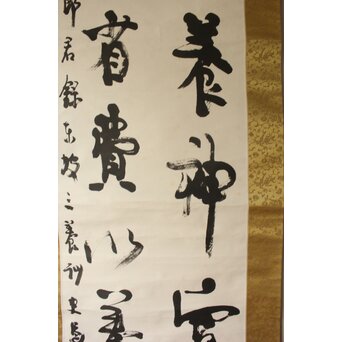 養神
省費以養
君録東坡三養訓